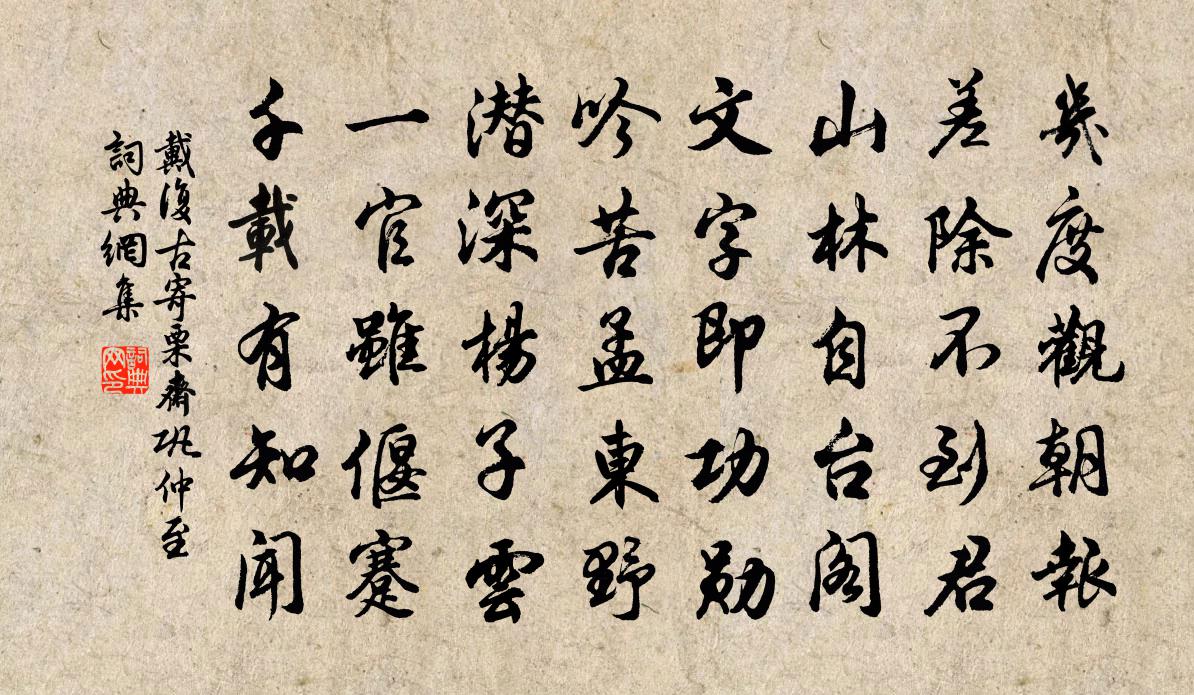 幾度觀朝報
差除不到君
山林自台閣
文字即功勛
吟苦孟東野
潛深楊子雲
一官雖偃蹇
千載有知聞
戴復古寄栗齋巩仲至
詞典網集
詞典网印